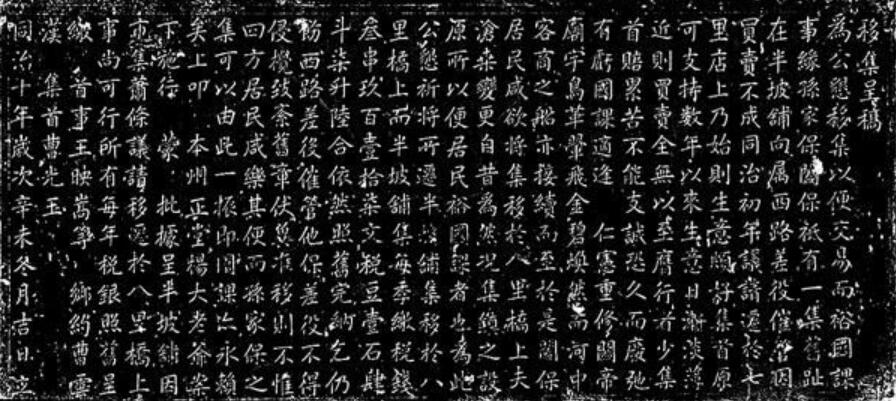 移集呈稿
為公懇移集以便交易而裕國課
事緣孫家保闔保祇有一集舊趾
在半坡鋪向属西路差役催管因
買賣不成同治初年議請遷於七
里店上乃始則生意頗好集首原
可支持數年以來生意日漸淡薄
近則買賣全無以至膺行者少集
首賠累苦不能支誠恐久而廢弛
有虧國課適逢 仁憲重修關帝
廟宇鳥革翬飛金碧煥然而河中
客商之船亦接續而至於是闔保
居民咸欲將集移於八里橋上夫
滄桑變更自昔為然况集鎮之設
原所以便居民裕國課者也為此
公懇祈將所遷半坡鋪集移於八
里橋上而半坡鋪集每季繳稅錢
叁串玖百壹拾柒文稅豆壹石肆
斗柒升陸合依然照舊完納乞仍
飭西路差役催管他保差役不得
侵攬致紊舊章伏冀准移則不惟
四方居民咸樂其便而孫家保之
集可以由此一振即國課亦永賴
矣上叩 本州正堂楊大老爺案
下施行 蒙 批據呈半坡鋪因
市集蕭條議請移遷於八里橋上
事尚可行所有每年稅銀照舊呈
繳 首事王映嵩等 鄉約曹雲
漢 集首曹光玉
同治十年歲次辛未冬月吉日立